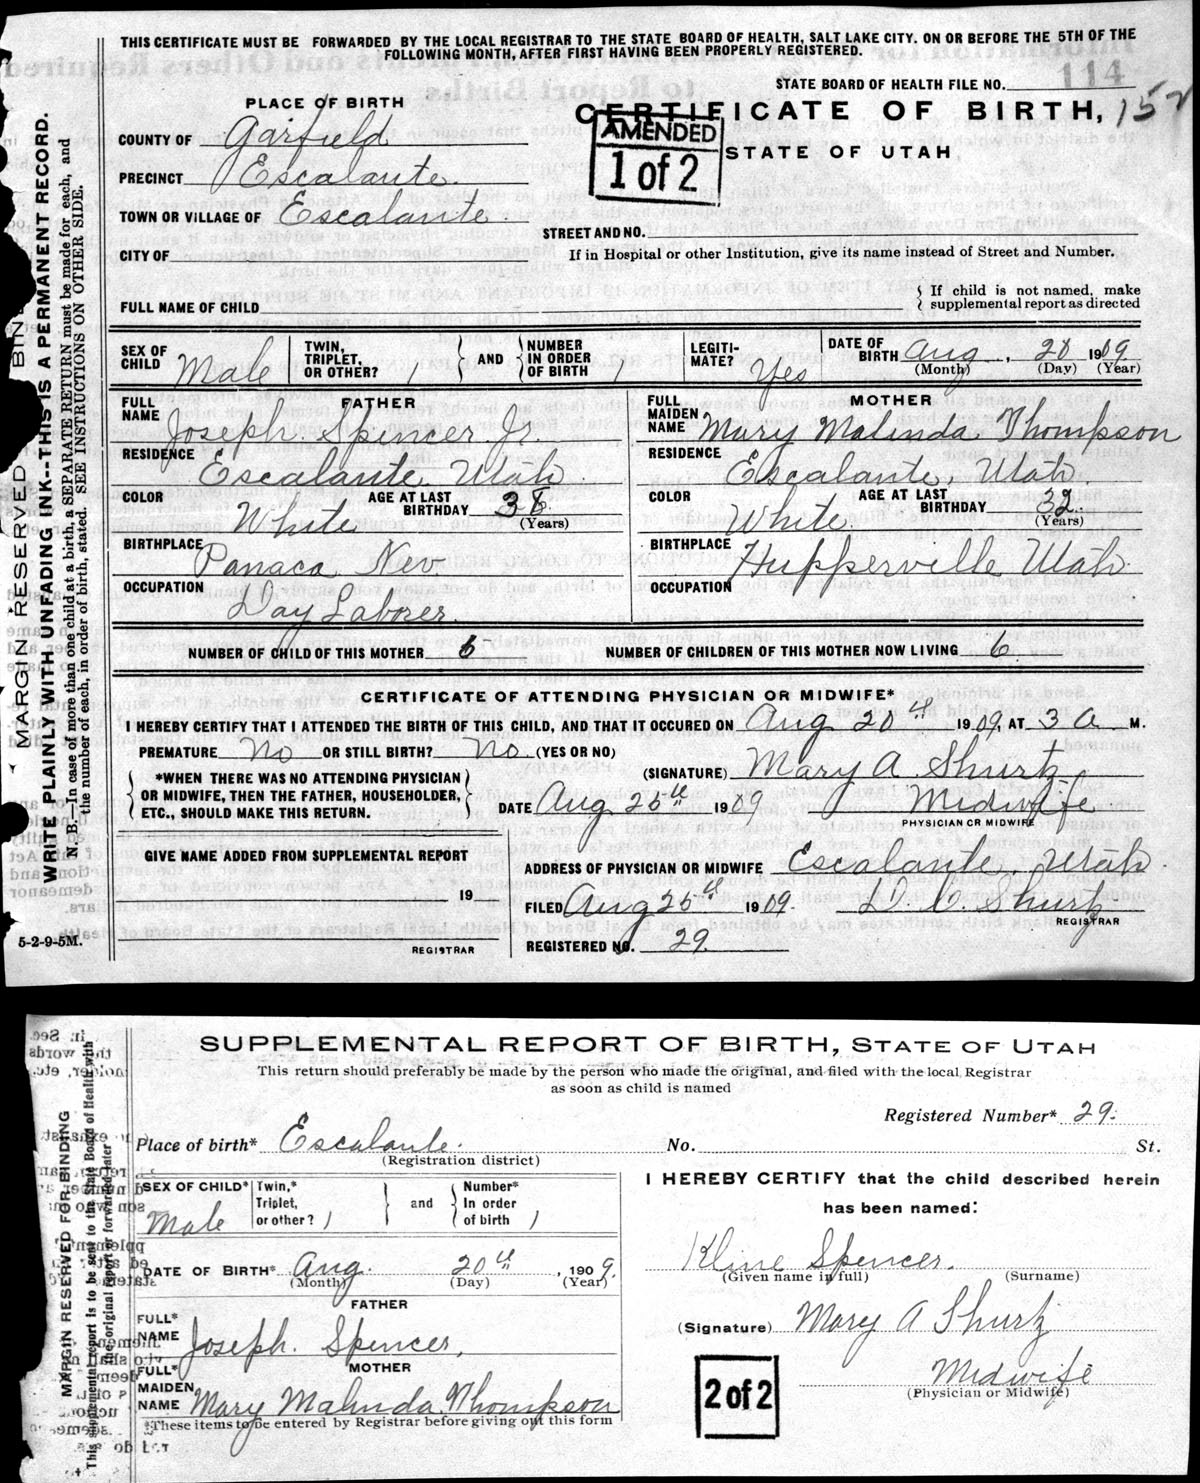 THIS CERTIFICATE MUST BE FORWARDED BY THE LOCAL REGISTRAR TO THE STATE BOARD OF HEALTH, SALT LAKE CITY, ON OR BEFORE THE 5TH OF THE
FOLLOWING MONTH, AFTER FIRST HAVING BEEN PROPERLY REGISTERED.
STATE BOARD OF HEALTH FILE NO. 114
PLACE OF BIRTH
CERTIFICATE OF BIRTH, 152
COUNTY OF Garfield
AMENDED
1 of 2
STATE OF UTAH
PRECINCT Escalante.
TOWN OR VILLAGE OF Escalante
STREET AND NO.
CITY OF
If in Hospital or other Institution, give its name instead of Street and Number.
FULL NAME OF CHILD
{ If child is not named, make
supplemental report as directed
SEX OF CHILD Male
TWIN, TRIPLET, OR OTHER? 1
AND
NUMBER IN ORDER OF BIRTH 1
LEGITI-MATE? Yes
DATE OF BIRTH Aug, 20 1909
(Month) (Day) (Year)
FATHER
FULL NAME Joseph. Spencer Jr.
RESIDENCE Escalante, Utah
COLOR White
AGE AT LAST BIRTHDAY (Years)
BIRTHPLACE Panaca Nev.
OCCUPATION Day Laborer.
MOTHER
FULL MAIDEN NAME Mary Malinda Thompson
RESIDENCE Escalante, Utah
COLOR White.
AGE AT LAST BIRTHDAY 32. (Years)
BIRTHPLACE Hupperville Utah.
OCCUPATION
NUMBER OF CHILD OF THIS MOTHER 6
NUMBER OF CHILDREN OF THIS MOTHER NOW LIVING 6.
CERTIFICATE OF ATTENDING PHYSICIAN OR MIDWIFE*
I HEREBY CERTIFY THAT I ATTENDED THE BIRTH OF THIS CHILD, AND THAT IT OCCURED ON Aug 20th 1909, AT 3 a M.
PREMATURE No OR STILL BIRTH? No. (YES OR NO)
*WHEN THERE WAS NO ATTENDING PHYSICIAN
OR MIDWIFE, THEN THE FATHER, HOUSEHOLDER,
ETC., SHOULD MAKE THIS RETURN.
(SIGNATURE) Mary A. Shurtz
DATE Aug 25th 1909 Midwife
PHYSICIAN OR MIDWIFE
GIVE NAME ADDED FROM SUPPLEMENTAL REPORT
19
REGISTRAR
ADDRESS OF PHYSICIAN OR MIDWIFE Escalante, Utah.
FILED Aug 25th 1909. Shurtz
REGISTRAR
REGISTERED NO. 29.
5-2-9-5M.
MARGIN RESERVED BIN
WRITE PLAINLY WITH UNFADING INK--THIS IS A PERMANENT RECORD.
N. B.—In case of more than one child at a birth, a SEPARATE RETURN must be made for each, and
the number of each, in order of birth, stated. SEE INSTRUCTIONS ON OTHER SIDE.
SUPPLEMENTAL REPORT OF BIRTH, STATE OF UTAH
This return should preferably be made by the person who made the original, and filed with the local Registrar
as soon as child is named
Registered Number* 29.
Place of birth* Escalante. No. St.
(Registration district)
SEX OF CHILD* Male
Twin,* Triplet, or other? 1
and
Number* In order of birth 1
DATE OF BIRTH* Aug. 20th, 1909.
(Month) (Day) (Year)
FATHER
FULL* NAME Joseph. Spencer,
MOTHER
FULL* MAIDEN NAME Mary Malinda Thompson
*These items to be entered by Registrar before giving out this form
I HEREBY CERTIFY that the child described herein
has been named:
Kline Spencer.
(Given name in full) (Surname)
(Signature) Mary A Shurtz
Midwife
(Physician or Midwife)
2 of 2
MARGIN RESERVED FOR BINDING
This supplemental report is to be sent to the State Board of Health with
the original report or forwarded later